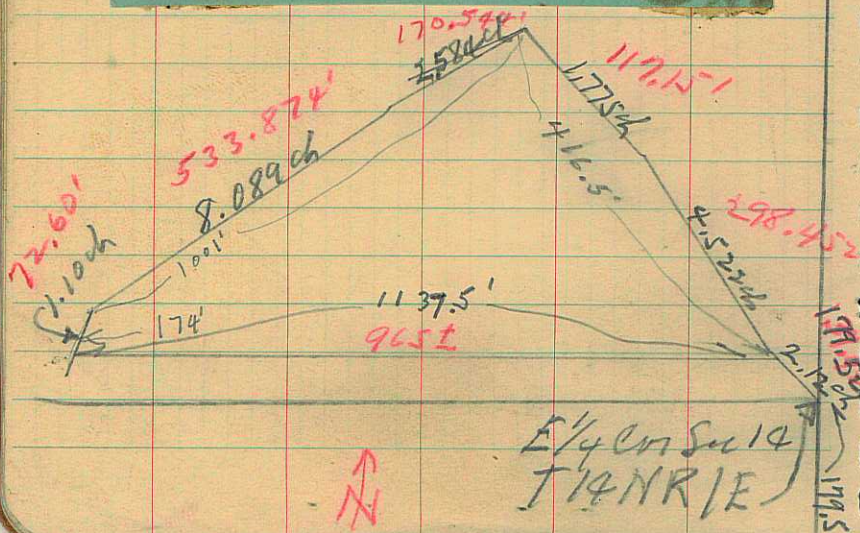 170.544'
2.584 ch
117.15'
1.775 ch
533.874'
8.089 ch
416.5'
298.452
4.522 ch
72.60'
1.10 ch
1001'
174'
1139.5'
965±
2.12 ch
179.5
E 1/4 Cor Sec 14
T 14 N R 1 E
N